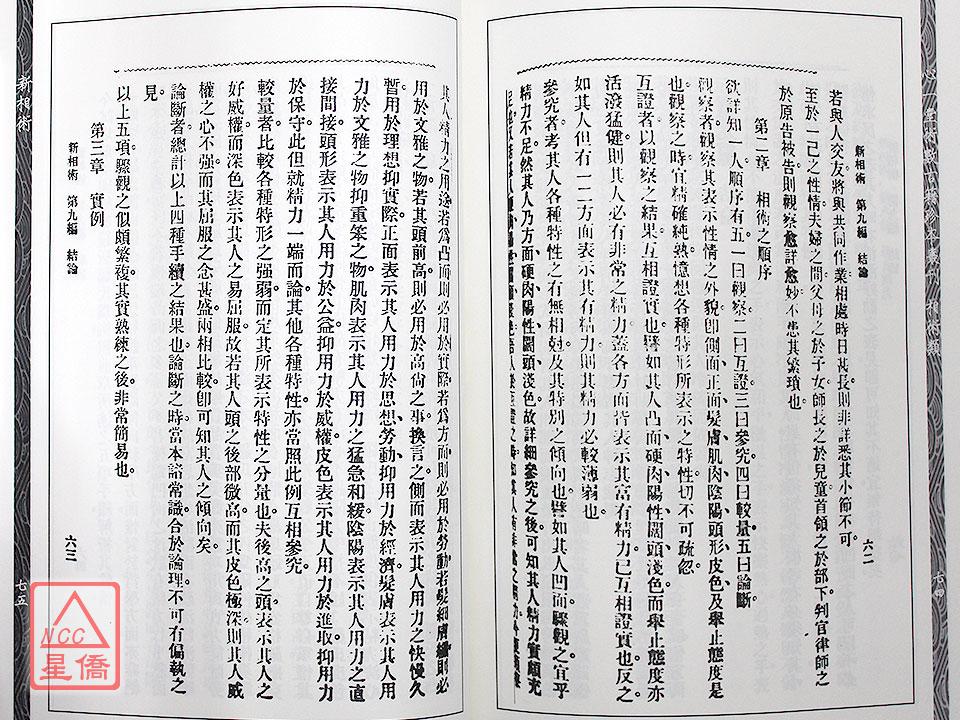 新相術　第九編　結論
六二
若與人交友將與共同作業相處時日甚長則非詳悉其小節不可。
至於一己之性情夫婦之間父母之於子女師長之於兒童首領之於部下判官律師之
於原告被告則觀察愈詳愈妙不患其繁瑣也。
第二章　相術之順序
欲詳知一人順序有五一曰觀察二曰互證三曰參究四曰較量五曰論斷
觀察者觀察其表示性情之外貌卽側面正面髮膚肌肉陰陽頭形皮色及舉止態度是
也觀察之時宜精確純熟憶想各種特形所表示之特性切不可疏忽
互證者以觀察之結果互相證實也譬如其人凸面硬肉陽性闊頭淺色而舉止態度亦
活潑猛健則其人必有非常之精力蓋各方面皆表示其富有精力已互相證實也反之
如其人但有一二方面表示其有精力則其精力必較薄弱也
參究者考其人各種特性之有無相尅及其特別之傾向也譬如其人凹面驟觀之宜乎
精力不足然其人乃方面硬肉陽性闊頭淺色故詳細參究之後可知其人精力實頗充
其人精力之用途若爲凸面則必用於實際若爲方面則必用於勞動若髮細膚纖則必
用於文雅之物若其頭前高則必用於高尙之事換言之側面表示其人用力之快慢久
暫用於理想抑實際正面表示其人用力於思想勞動抑用力於經濟髮膚表示其人用
力於文雅之物抑重笨之物肌肉表示其人用力之猛急和緩陰陽表示其人用力之直
接間接頭形表示其人用力於公益抑用力於威權皮色表示其人用力於進取抑用力
於保守此但就精力一端而論其他各種特性亦當照此例互相參究
較量者比較各種特形之强弱而定其所表示特性之分量也夫後高之頭表示其人之
好威權而深色表示其人之易屈服故若其人頭之後部微高而其皮色極深則其人威
權之心不强而其屈服之念甚盛兩相比較卽可知其人之傾向矣。
論斷者總計以上四種手續之結果也論斷之時當本諸常識合於論理不可有偏執之
見。
以上五項驟觀之似頗繁複其實熟練之後非常簡易也。
第三章　實例
新相術　第九編　結論
六三
新相術
七五
NCC
星僑